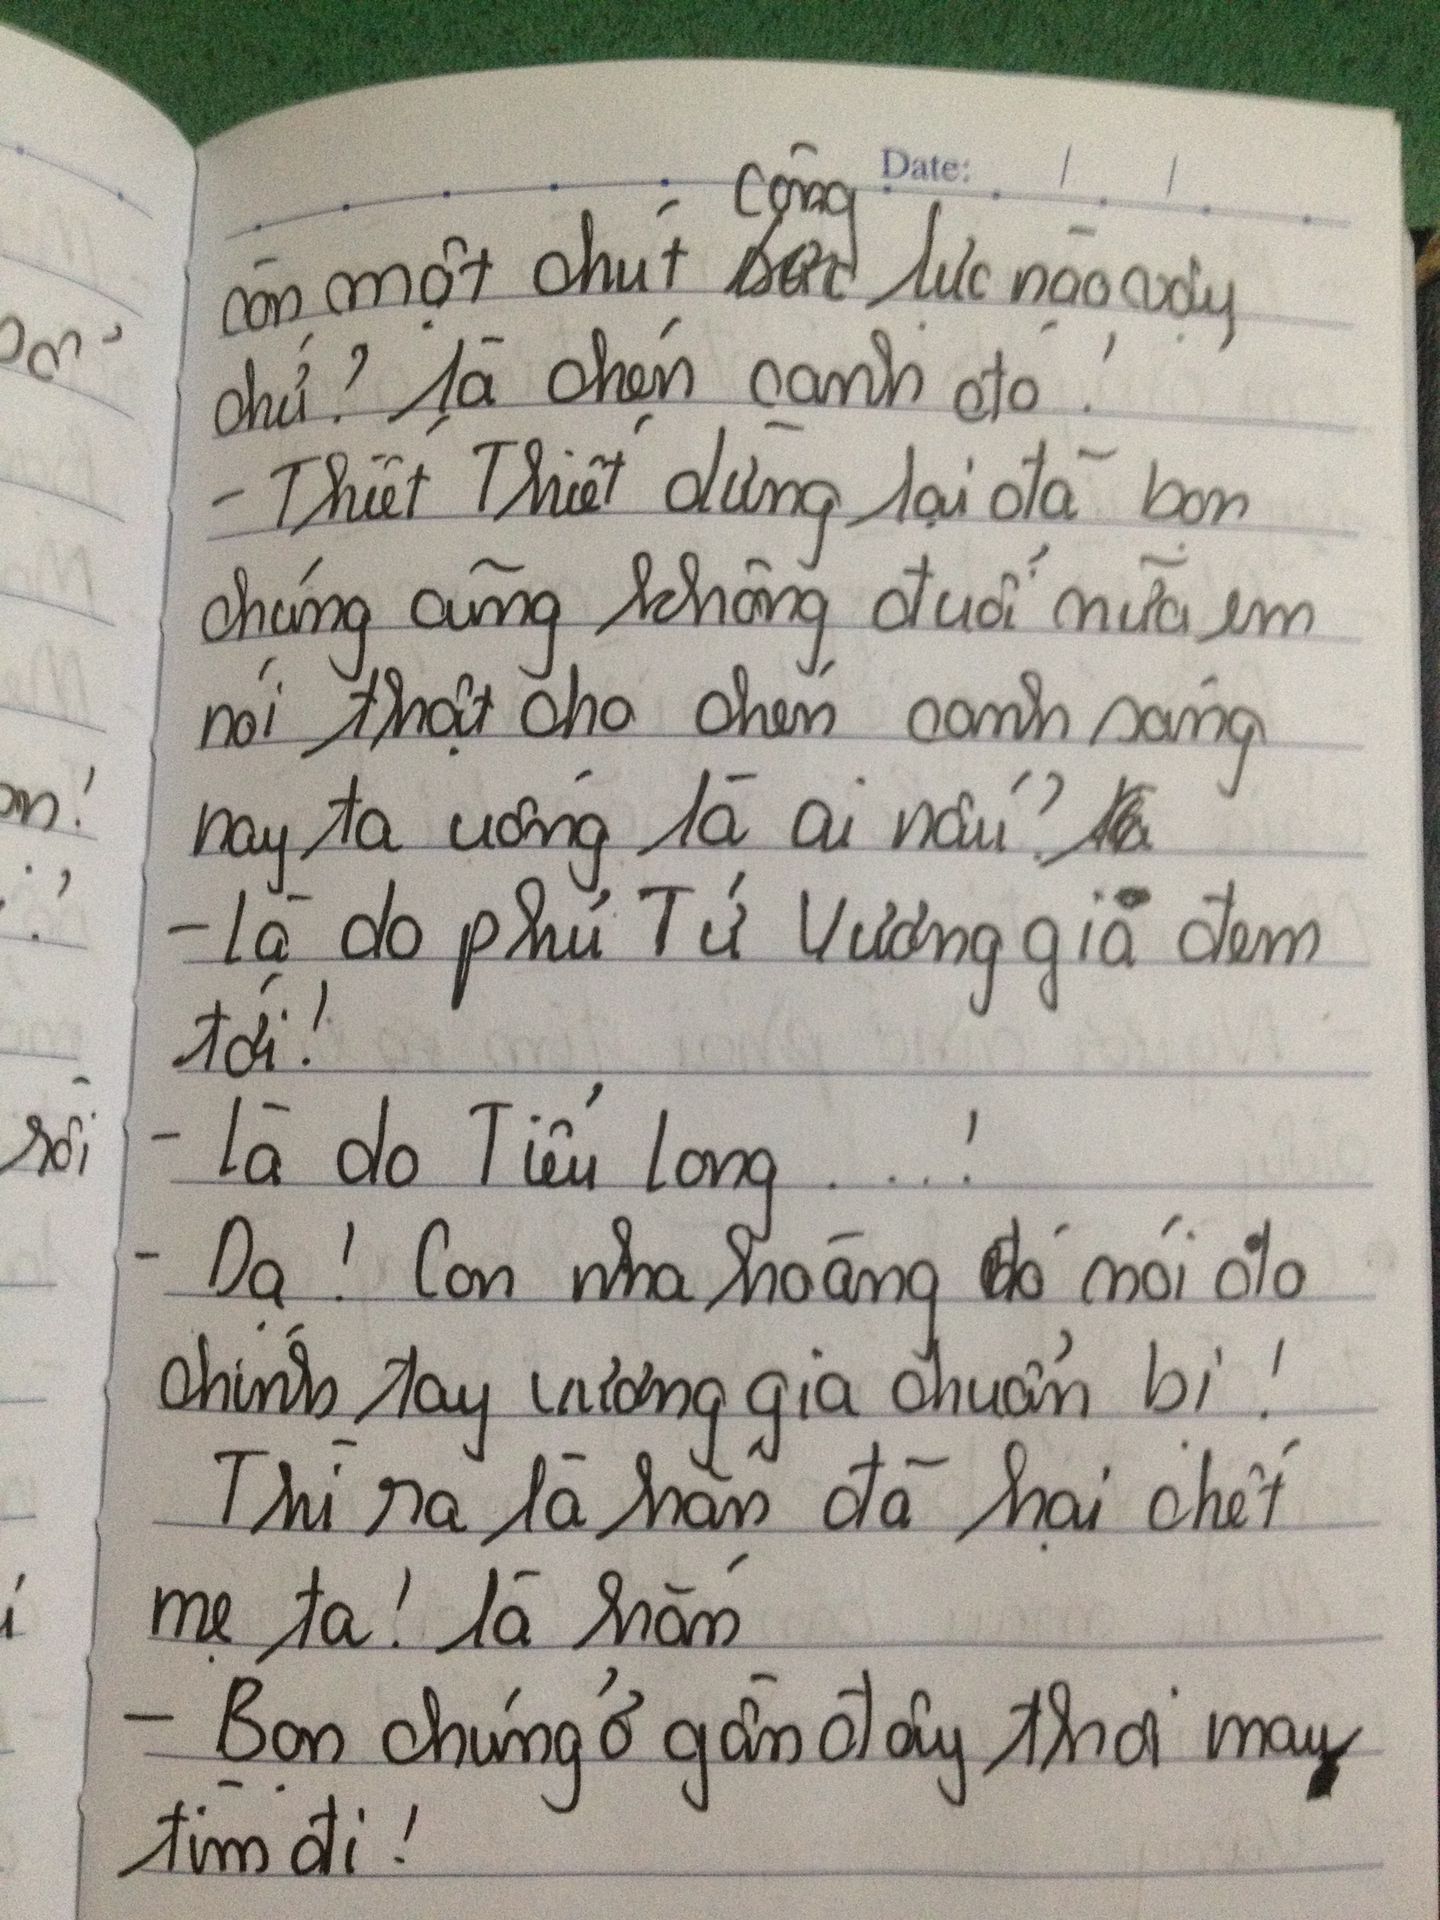 Date: / /
công
còn một chút lực nào vậy
chứ? là chén canh đó!
- Thiết Thiết dừng lại đã bọn
chúng cũng không đuổi nữa em
nói thật cho chén canh sáng
nay ta uống là ai nấu?
- Là do phủ Tứ Vương gia đem
tới!
- Là do Tiểu Long ....!
- Dạ! Con nha hoàng đó nói do
chính tay vương gia chuẩn bị!
Thì ra là hắn đã hại chết
mẹ ta! là hắn
- Bọn chúng ở gần đây thôi mau
tìm đi!
ơn!
rồi